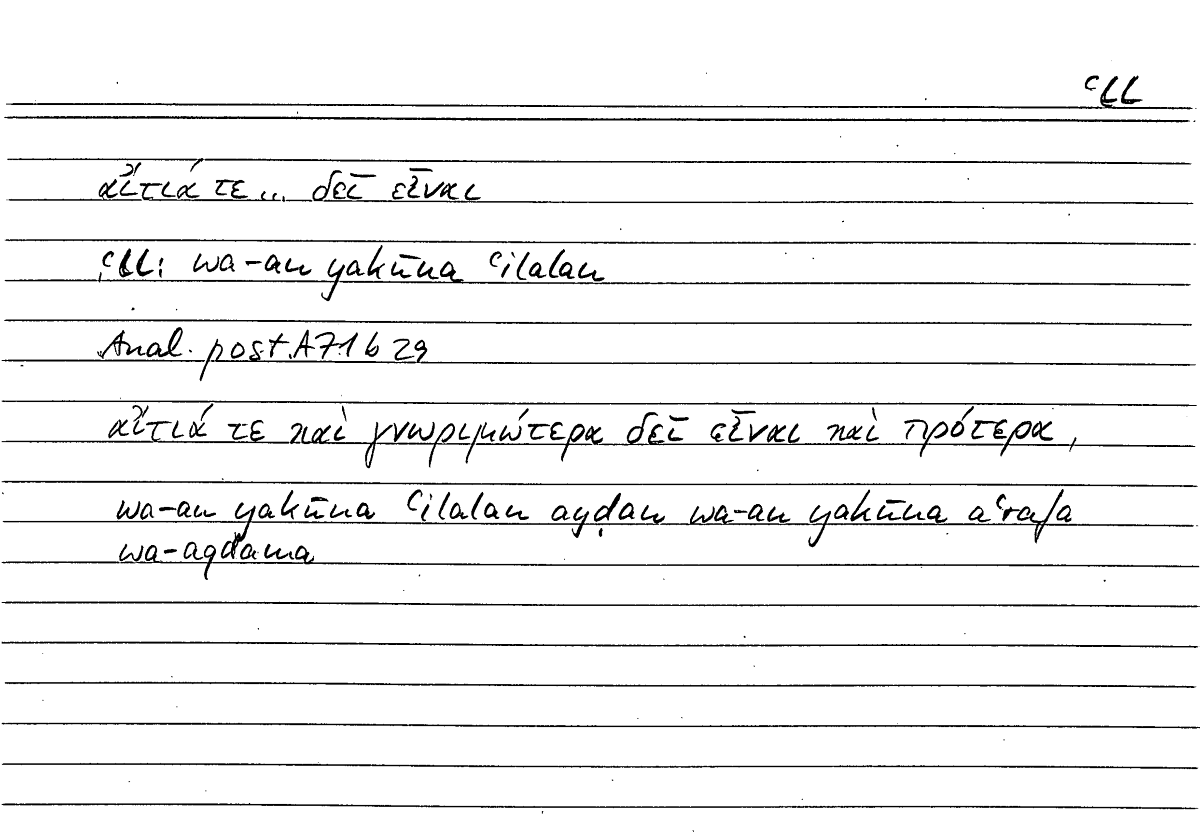 ʿLL
αἴτιά τε... δεῖ εἶναι
ʿLL: wa-an yakūna ʿilalan
Anal. post. A 71 b 29
αἴτιά τε καὶ γνωριμώτερα δεῖ εἶναι καὶ πρότερα,
wa-an yakūna ʿilalan ayḍan wa-an yakūna aʿrafa
wa-aqdama